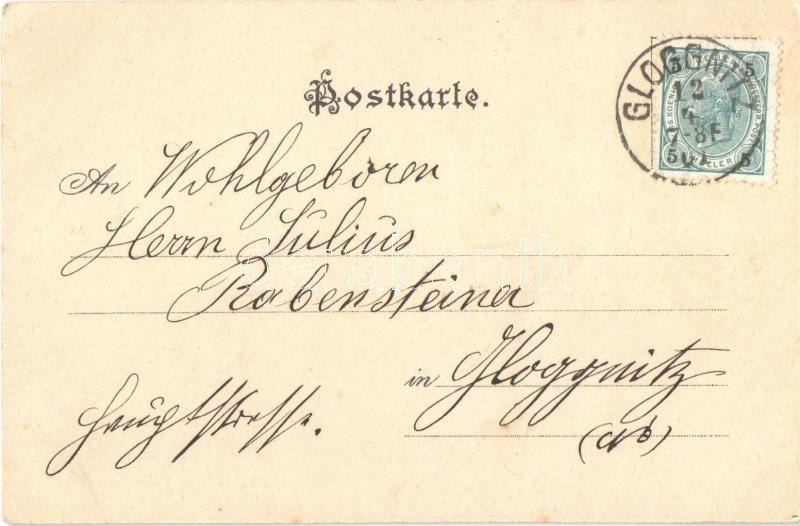 Postkarte.
GLOGGNITZ
12
4
-8F
01
5 5
5 HELLER 5
An Wohlgeboren
Herrn Julius
Rabensteiner
in Gloggnitz
Hauptstrasse.